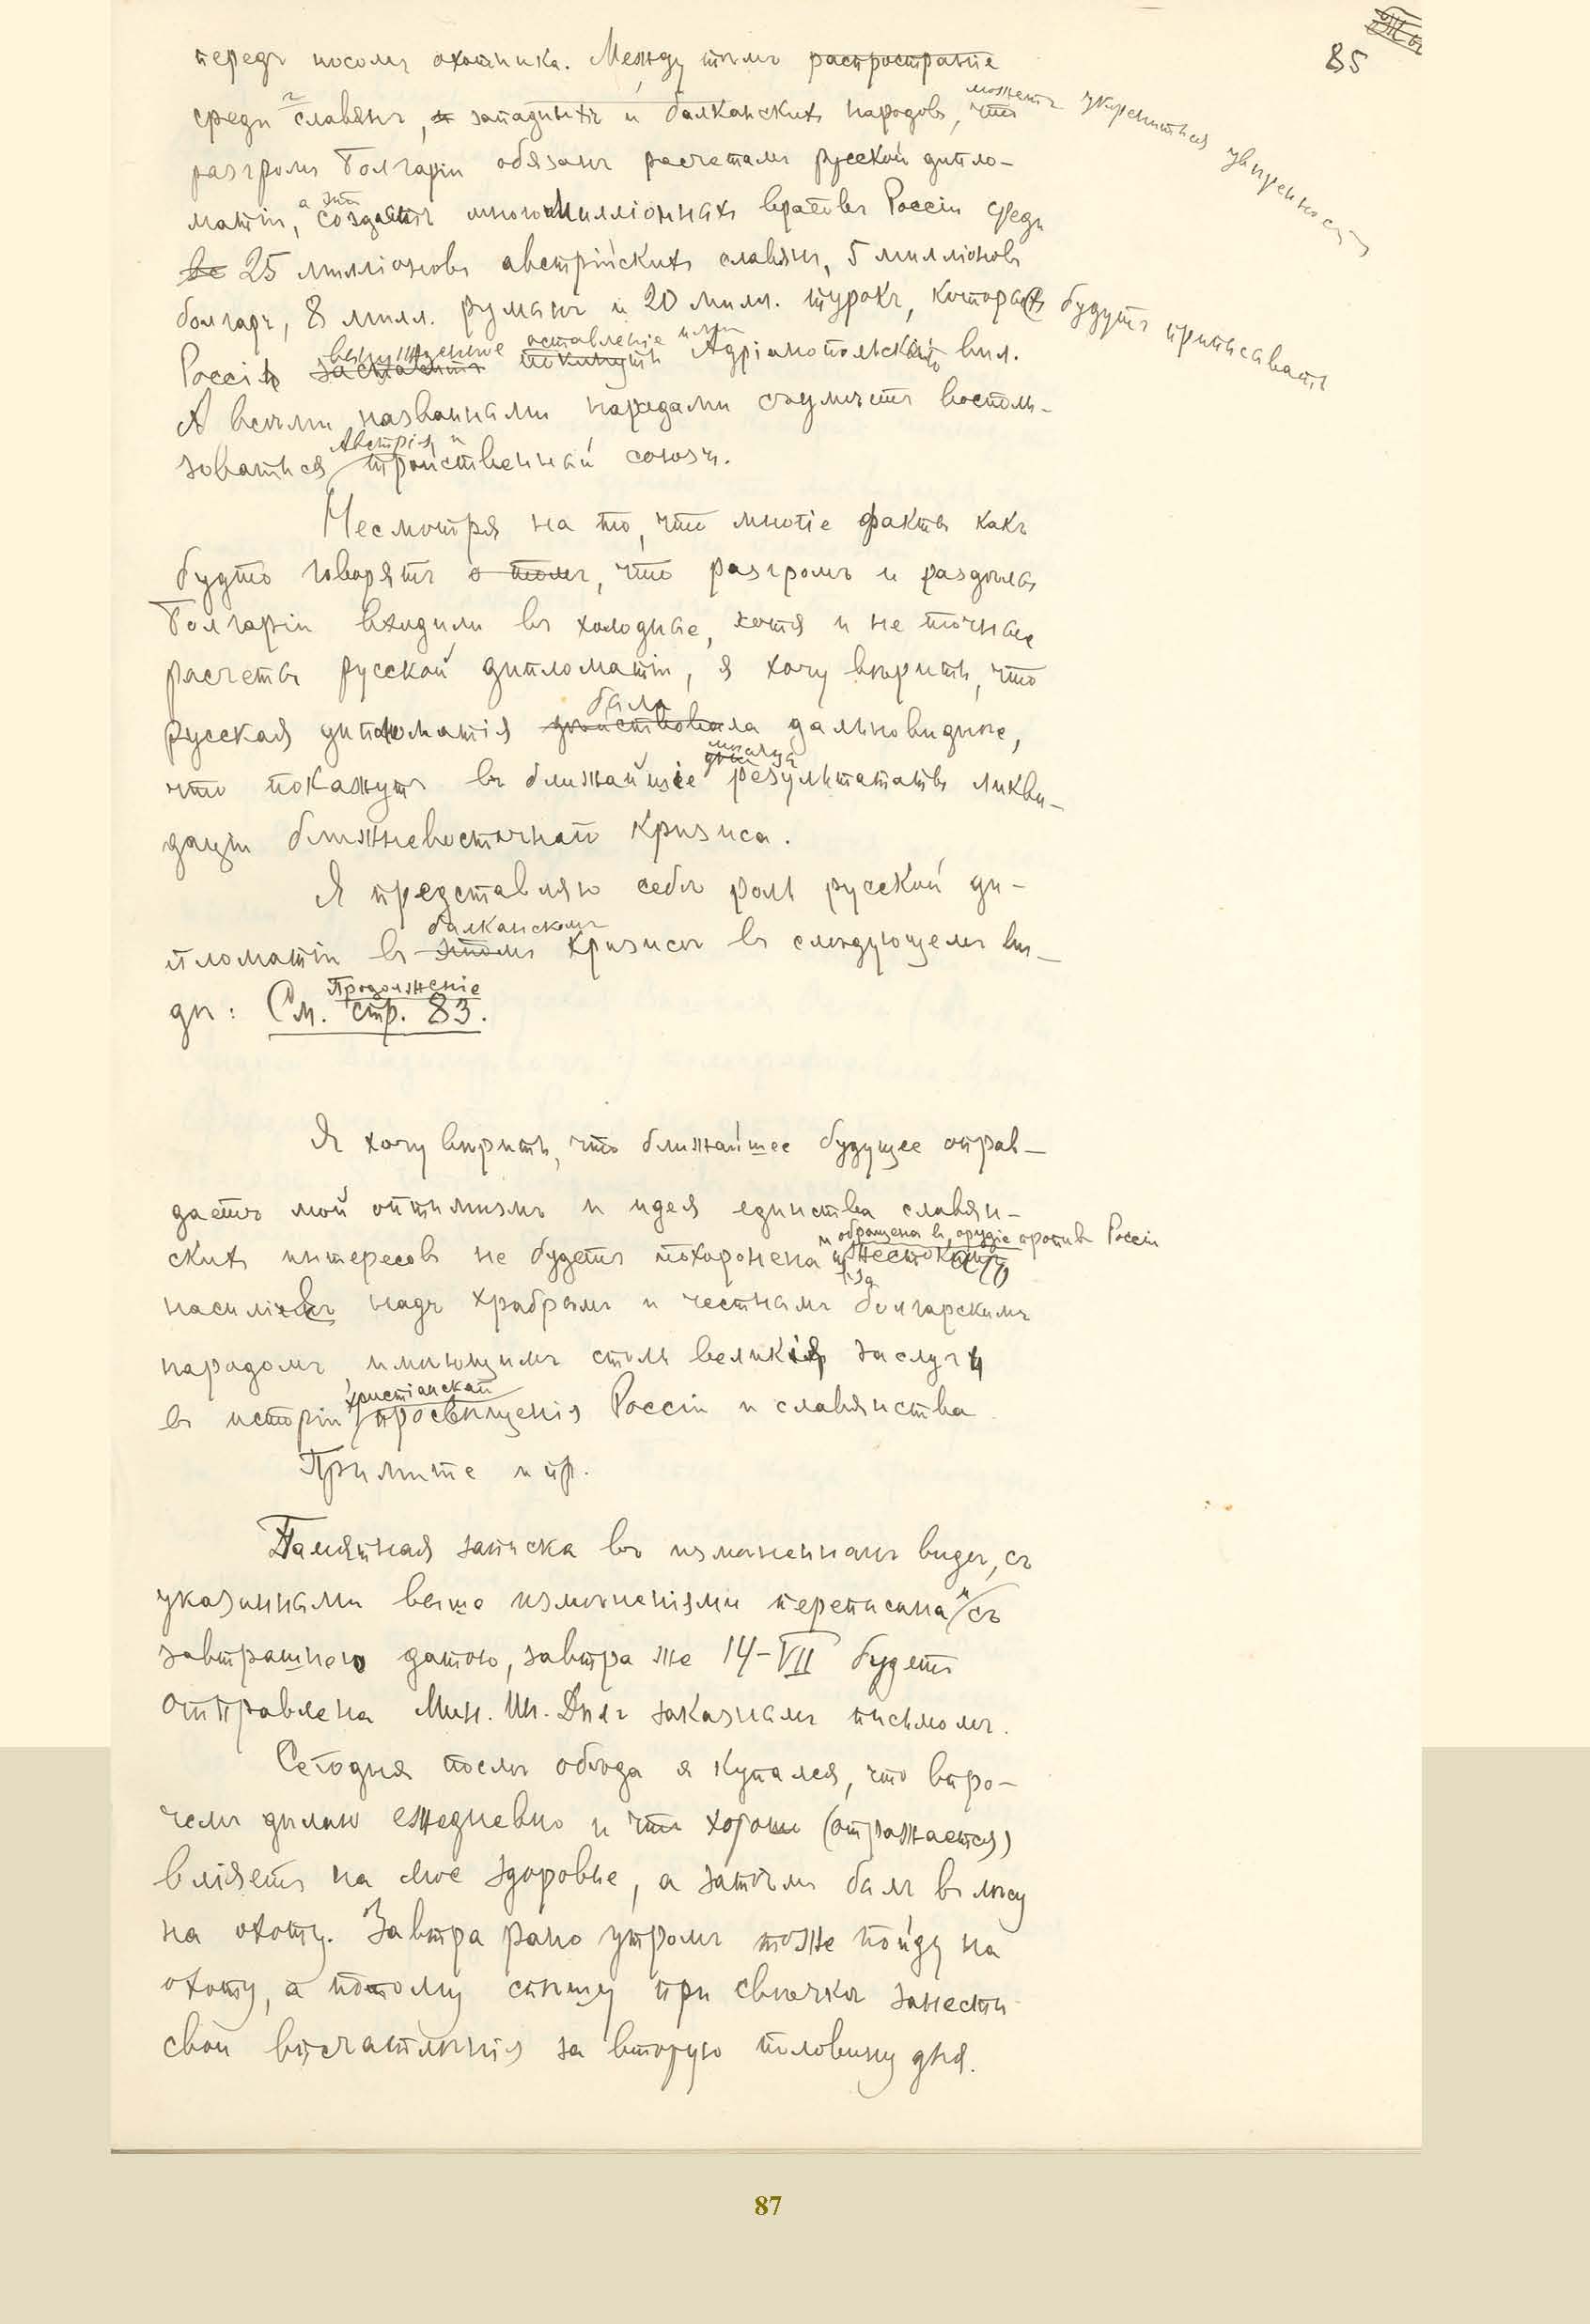 85
передъ носомъ охотника. Между тѣмъ распростране
среди славянъ, западныхъ и балканскихъ народовъ, что можетъ укрѣпиться увѣренность
разгромъ Болгаріи обязанъ расчетамъ русской дипло-
матіи, а это создастъ многомилліонныхъ враговъ Россіи среди
25 милліоновъ австрійскихъ славянъ, 5 милліоновъ
болгаръ, 8 милл. румынъ и 20 милл. турокъ, которые будутъ приписывать
Россіи вынужденное оставленіе ими Адріанопольскаго вил.
А всѣми названными народами съумѣетъ восполь-
зоваться Австрія и тройственный союзъ.
Несмотря на то, что многіе факты какъ
будто говорятъ о томъ, что разгромъ и раздѣлъ
Болгаріи входили въ холодные, хотя и не точные
расчеты русской дипломатіи, я хочу вѣрить, что
русская дипломатія дѣйствовала была дальновиднѣе,
что покажутъ въ ближайшіе мѣсяца результаты ликви-
даціи ближневосточнаго кризиса.
Я представляю себѣ роль русской ди-
пломатіи въ этомъ балканскомъ кризисѣ въ слѣдующемъ ви-
дѣ: Продолженіе См. стр. 83.
Я хочу вѣрить, что ближайшее будущее оправ-
даетъ мой оптимизмъ и идея единства славян-
скихъ интересовъ не будетъ похоронена и обращена въ орудіе противъ Россіи жестокимъ
изъ-за насилія надъ храбрымъ и честнымъ болгарскимъ
народомъ, имѣющимъ столь великія заслуги
въ исторіи христіанской просвѣщенія Россіи и славянства
Примите и пр.
Памятная записка въ измѣненномъ видѣ, съ
указанными выше измѣненіями переписана и съ
завтрашнею датою, завтра же 14-VII будетъ
отправлена Мин. Ин. Дѣлъ заказнымъ письмомъ.
Сегодня послѣ обѣда я купался, что впро-
чемъ дѣлаю ежедневно и что хорошо (отражается)
вліяетъ на мое здоровье, а затѣмъ былъ въ лѣсу
на охоту. Завтра рано утромъ тоже пойду на
охоту, а потому спѣшу при свѣчкѣ занести
свои впечатлѣнія за вторую половину дня.
87